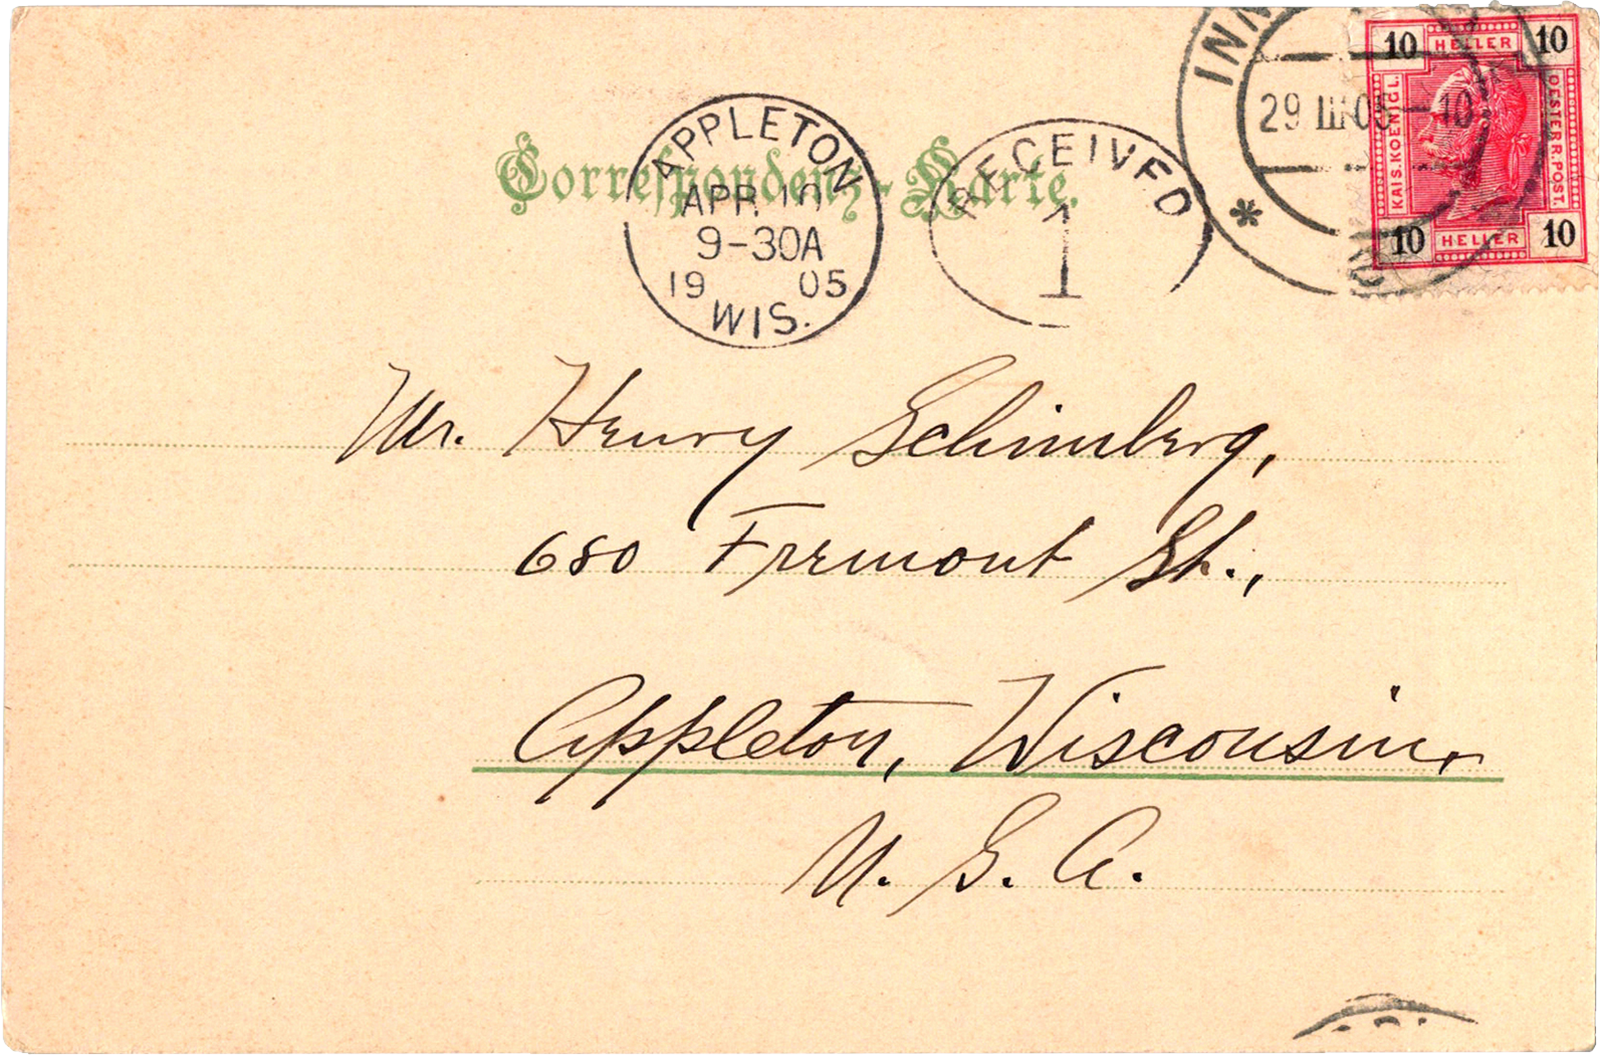 Correspondenz-Karte.
APPLETON
APR 10
9-30A
19 05
WIS.
RECEIVED
1
INN
29 III 05-10
10 HELLER 10
KAIS. KOENIGL.
OESTERR. POST.
10 HELLER 10
Mr. Henry Schimberg,
680 Fremont St.,
Appleton, Wisconsin,
U. S. A.